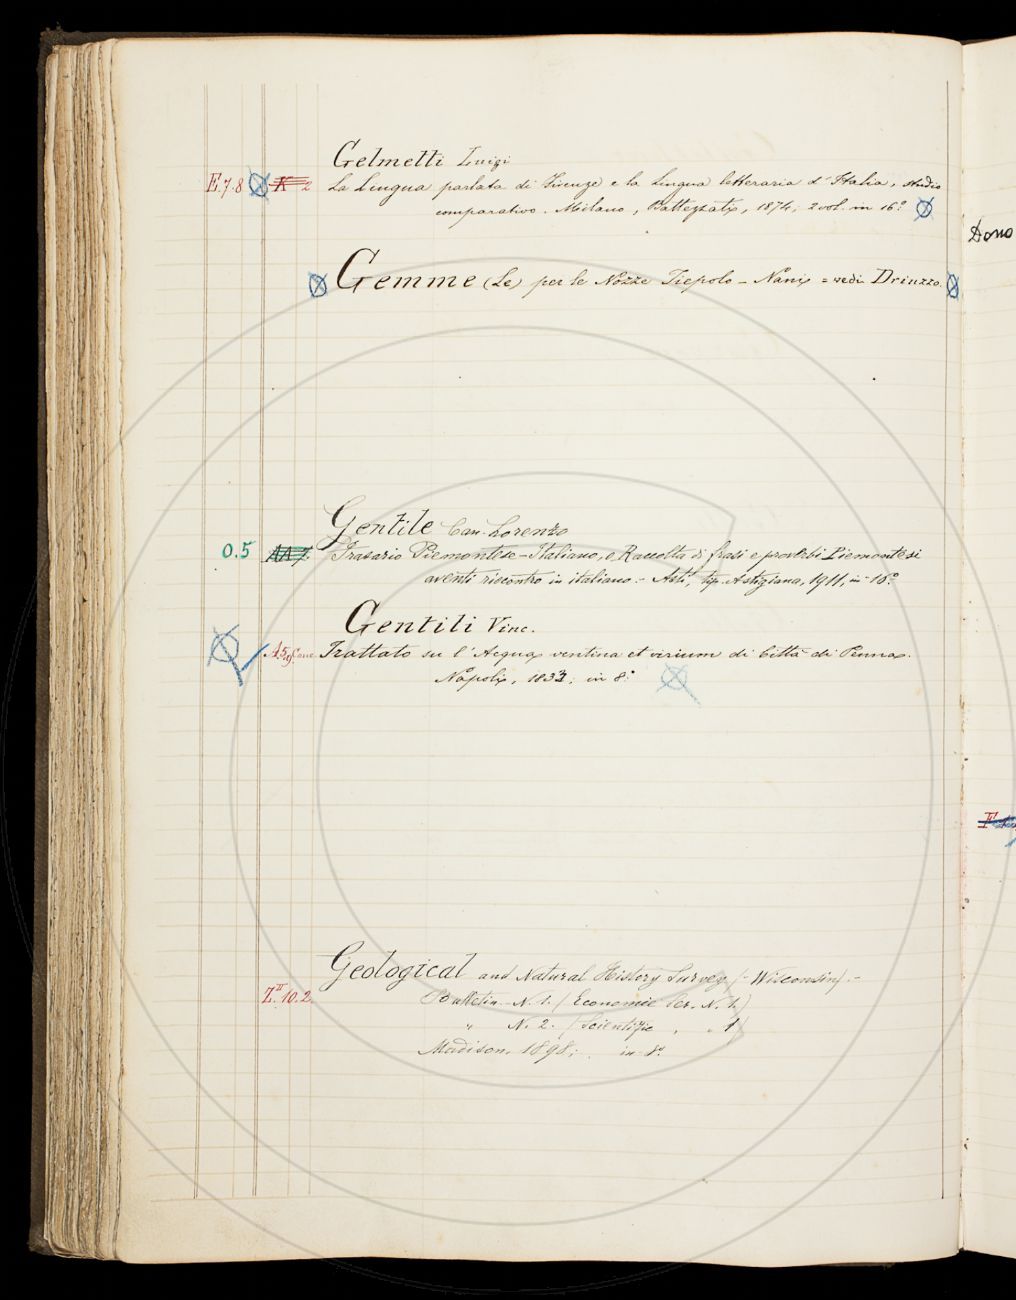 Gelmetti Luigi
E.7.8 K 2 La Lingua parlata di Firenze e la Lingua letteraria d'Italia, studio
comparativo. Milano, Battezzati, 1874; 2 vol. in 16.º
Dono
Gemme (Le) per le Nozze Tiepolo - Nani = vedi Driuzzo.
Gentile Can. Lorenzo
O.5 Frasario Piemontese-Italiano, e Raccolta di frasi e proverbi Piemontesi
aventi riscontro in italiano. - Asti, tip. Astigiana, 1911, in-16.º
Gentili Vinc.
Trattato su l'Acqua ventina et virium di Città di Penna.
Napoli, 1833; in 8.º
Geological and Natural History Survey (- Wisconsin). -
Z.II 10.2 Bulletin - N. 1. (Economic Ser. N. 1.)
" N. 2. (Scientific " " 1)
Madison, 1898; in-8.º